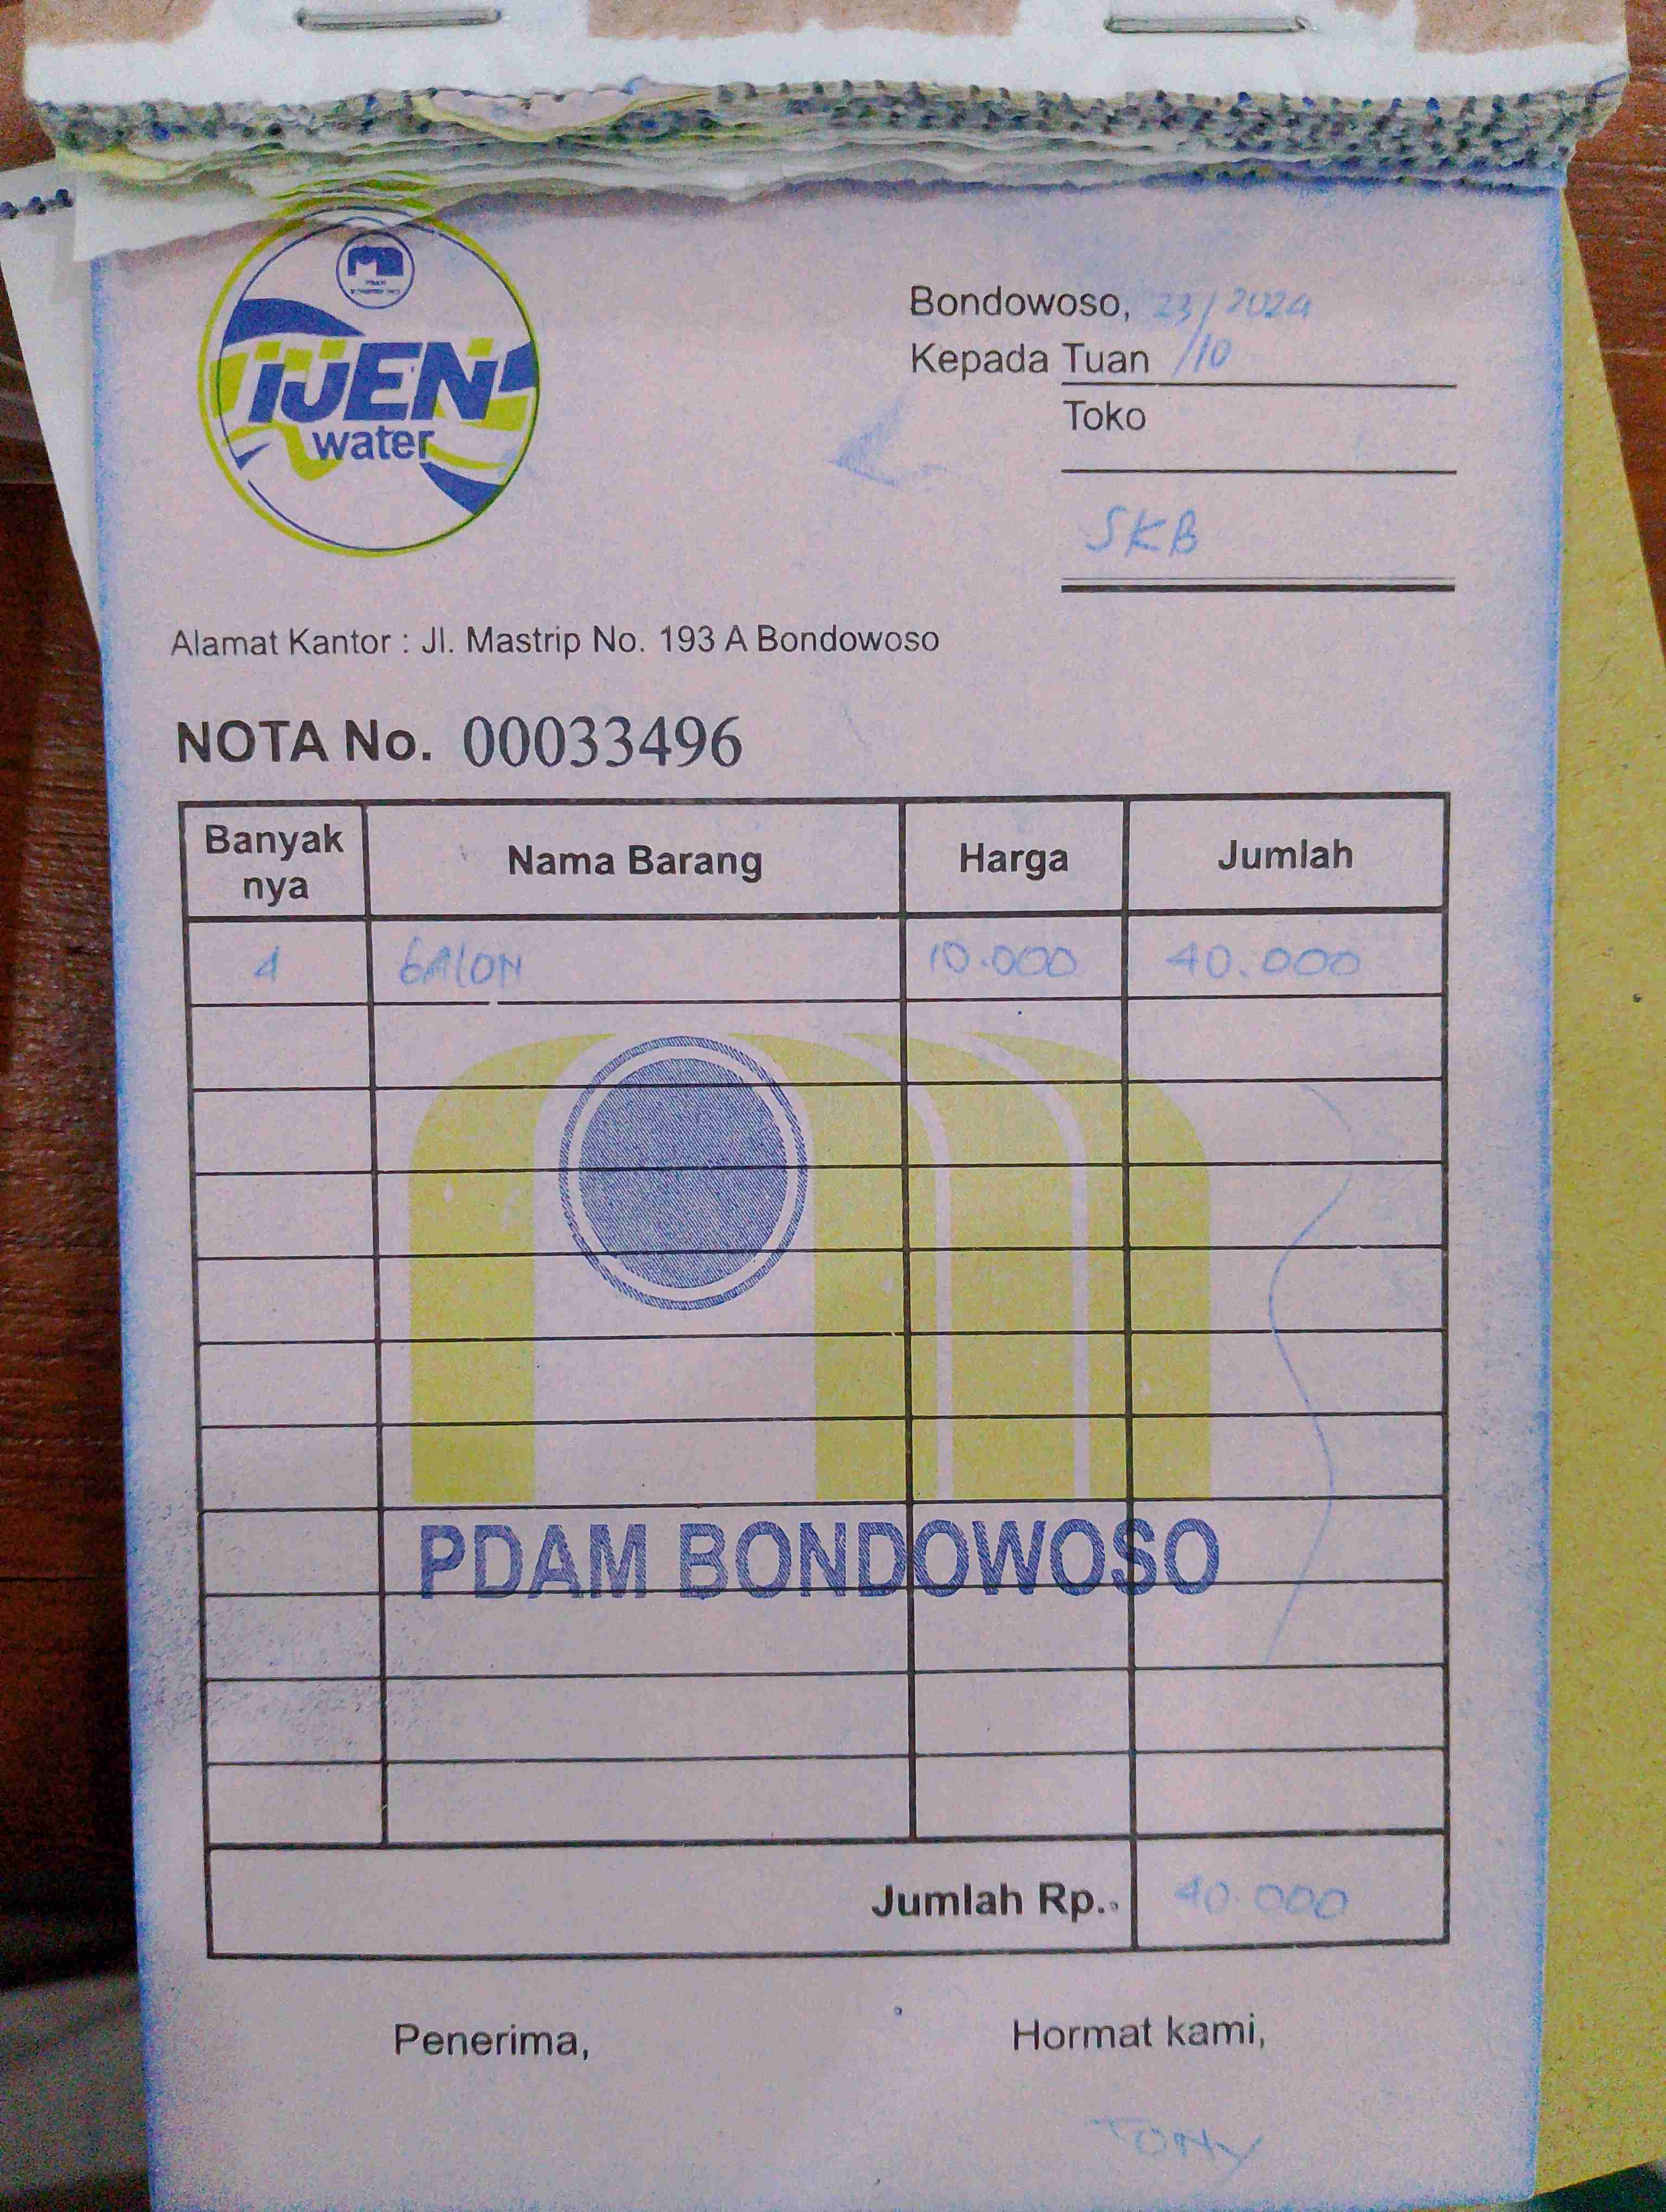 IJEN
water
Bondowoso, 23/10 2024
Kepada Tuan
Toko
SKB
Alamat Kantor : Jl. Mastrip No. 193 A Bondowoso
NOTA No. 00033496
Banyak nya Nama Barang Harga Jumlah
4 GALON 10.000 40.000
PDAM BONDOWOSO
Jumlah Rp.. 40.000
Penerima, Hormat kami,
TONY